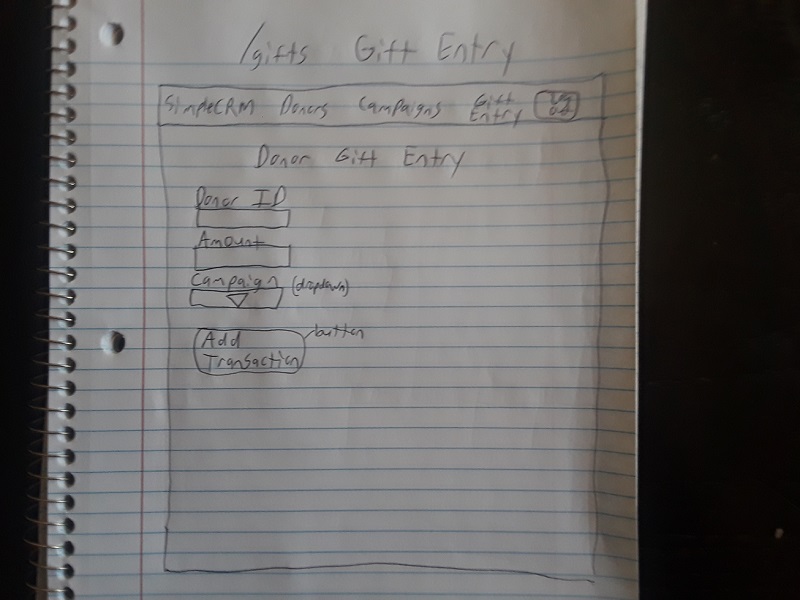 /gifts Gift Entry
SimpleCRM Donors Campaigns Gift Entry Log Out
Donor Gift Entry
Donor ID
Amount
Campaign (dropdown)
Add button
Transaction